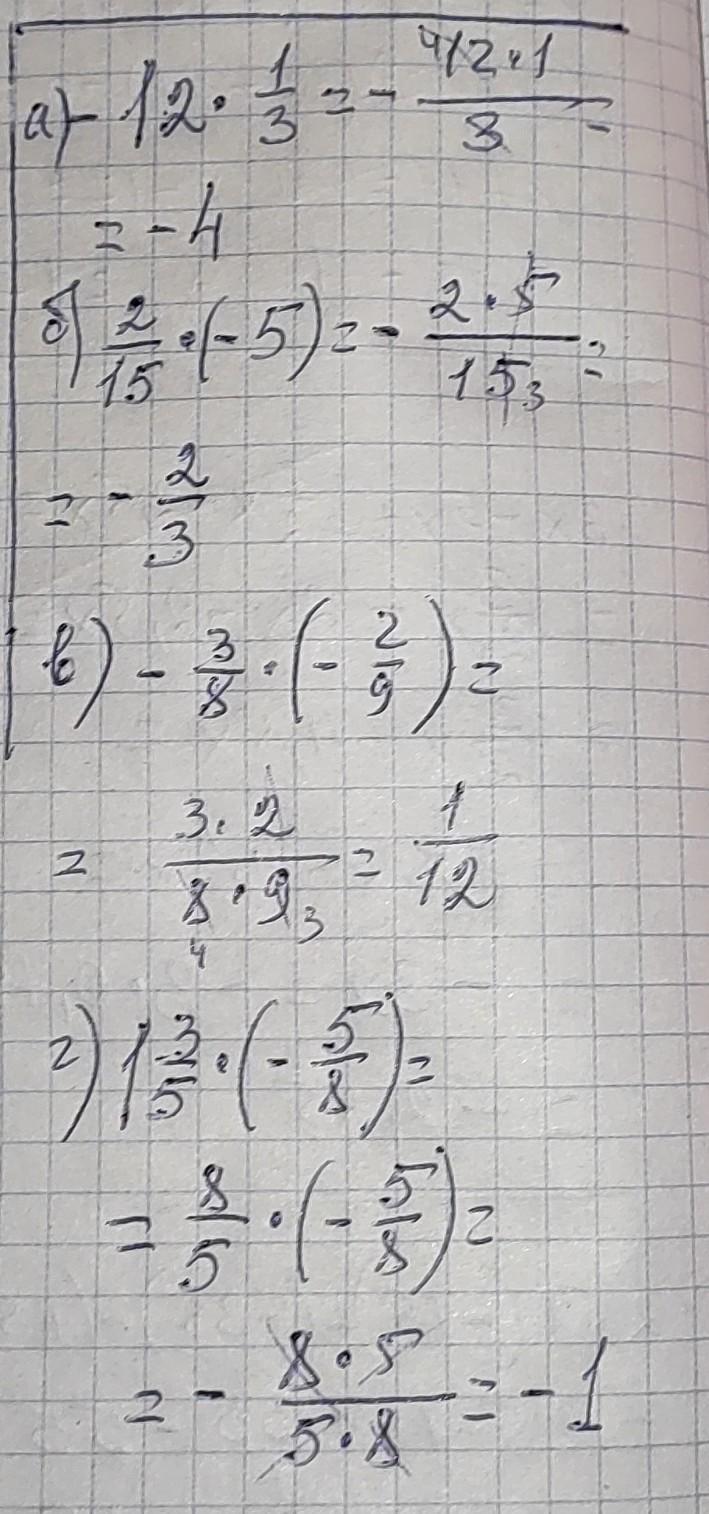 а) - 12 · 1/3 = - ⁴12 · 1/3 =
= - 4
б) 2/15 · (- 5) = - 2 · 5¹/15₃ =
= - 2/3
в) - 3/8 · (- 2/9) =
= 3 · 2/8₄ · 9₃ = 1/12
г) 1 3/5 · (- 5/8) =
= 8/5 · (- 5/8) =
= - 8 · 5/5 · 8 = - 1